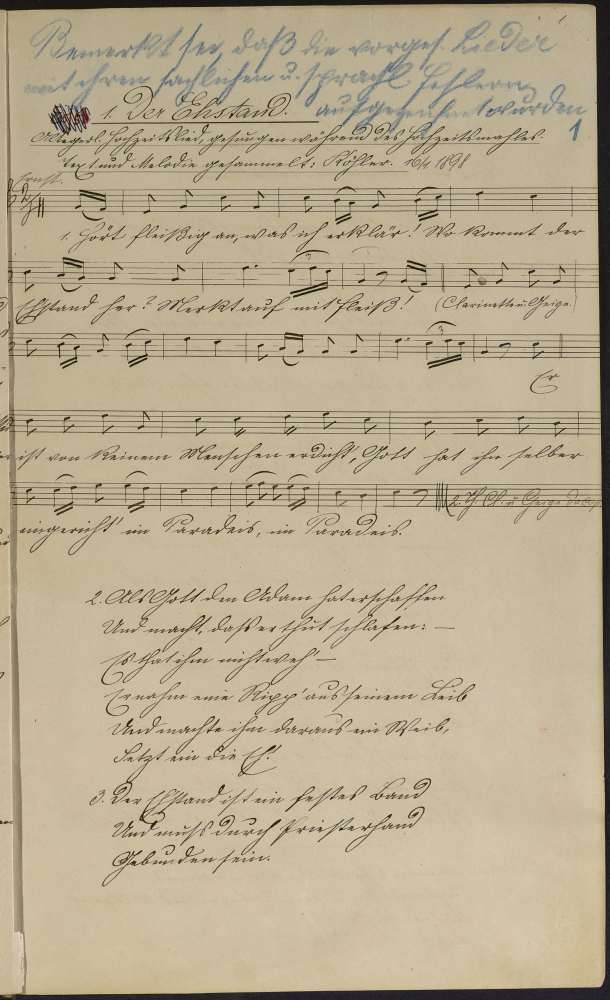 1
Bemerkt sei, daß die vorges. Lieder
mit ihren sachlichen u. sprachl. Fehlern
aufgezeichnet wurden
1. Der Ehstand.
1
Altegerl. Hochzeitslied, gesungen während des Hochzeitsmahles.
Text und Melodie gesammelt: Köhler. 16/4 1898
Ernst.
1. Hört fleißig an, was ich erklär'! Wo kommt der
Ehstand her? Merkt auf mit Fleiß! (Clarinette u. Geige.)
3
3
Er
ist von keinem Menschen erdicht', Gott hat ihn selber
eingericht' im Paradeis, im Paradeis.
2. Th. Cl. u. Geige
2. Als Gott den Adam hat erschaffen
Und macht, dass er thut schlafen: —
Es that ihm nicht weh' —
Er nahm eine Ripp' aus seinem Leib
Und machte ihm daraus ein Weib,
Setzt ein die Eh'.
3. Der Ehstand ist ein festes Band
Und muss durch Priesterhand
Gebunden sein.